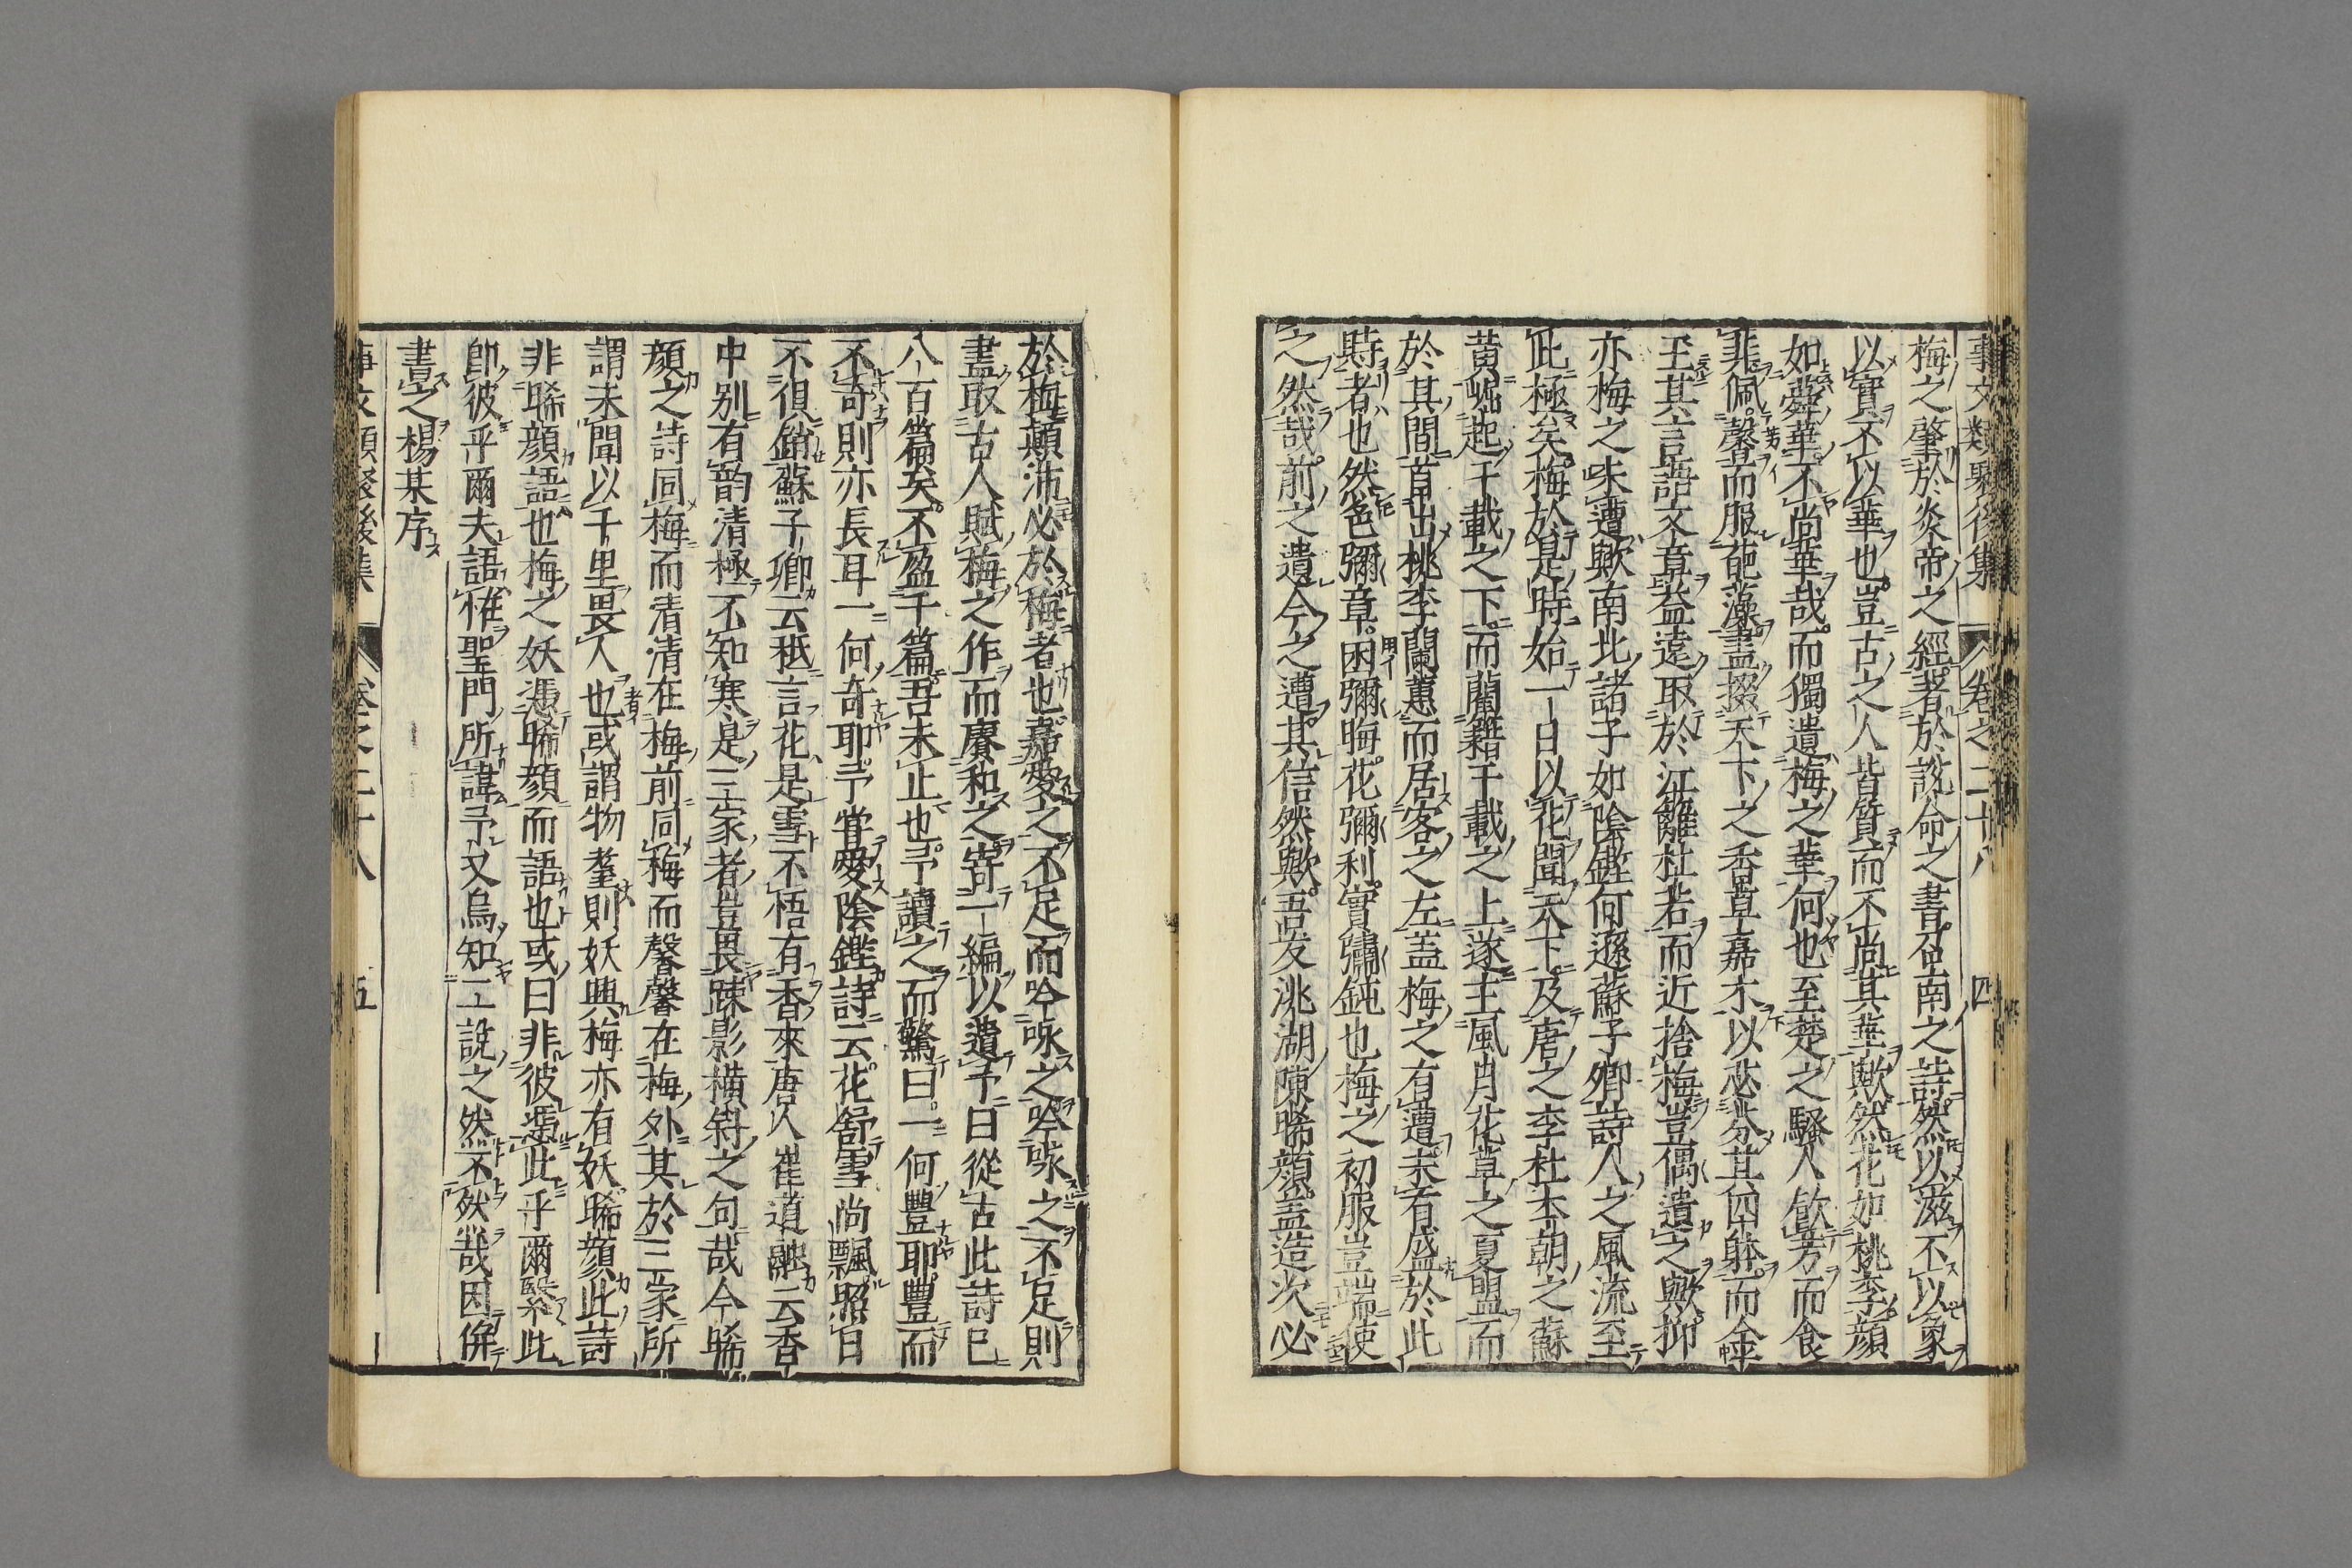 事文類聚後集 卷之二十八 四
梅之肇於炎帝之經著於說命之書召南之詩然以滋不以象
以實不以華也豈古之人皆質而不尚其華歟然花如桃李顏
如蕣華不尚華哉而獨遺梅之華何也至楚之騷人飲芳而食
菲佩馨而服葩藻盡掇天下之香草嘉木以苾芬其四躰而金
玉其言語文章蓋遠取於江籬杜若而近捨梅豈偶遺之歟抑
亦梅之未遭歟南北諸子如陰鏗何遜蘇子卿詩人之風流至
此極矣梅於是時始一日以花聞天下及唐之李杜本朝之蘇
黃崛起千載之下而藺籍千載之上遂主風月花草之夏盟而
於其間首出桃李蘭蕙而居客之左盖梅之有遭未有盛於此
時者也然色彌章困彌晦花彌利實彌鈍也梅之初服豈端使
之然哉前之遺今之遭其信然歟吾友洮湖陳晞顏盖造次必
於梅顛沛必於梅者也嘉愛之不足而吟咏之吟咏之不足則
盡取古人賦梅之作而賡和之寄一編以遺予曰從古此詩已
八百篇矣不盈千篇吾未止也予讀之而驚曰一何豐耶豐而
不奇則亦長耳一何奇耶予嘗愛陰鏗詩云花舒雪尚飄照日
不俱銷蘇子卿云秪言花是雪不悟有香來唐人崔道融云香
中別有韵清極不知寒是三家者豈畏踈影橫斜之句哉今晞
顏之詩同梅而清清在梅前同梅而馨馨在梅外其於三家所
謂未聞以千里畏人也或謂物羣則妖興梅亦有妖晞顏此詩
非晞顏語也梅之妖憑晞顏而語也或曰非彼憑此乎爾繄此
卽彼乎爾夫語惟聖門所諱予又烏知二說之然不然哉因倂
書之楊某序
事文類聚後集 卷之二十八 五